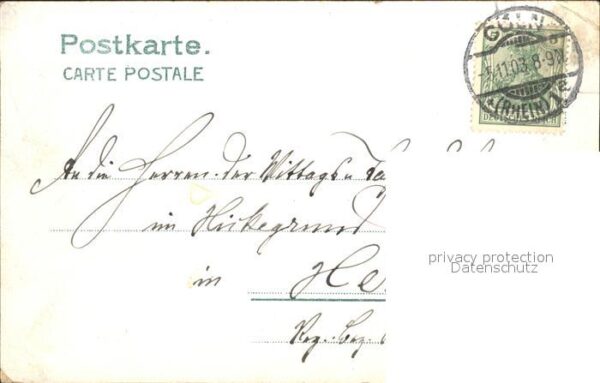 Postkarte.
CARTE POSTALE
CÖLN
-5.11.03.8-9N.
*(RHEIN)1e
An die Herren der Mittags u
im Hickegrund
in He
Reg. Bez.
privacy protection
Datenschutz